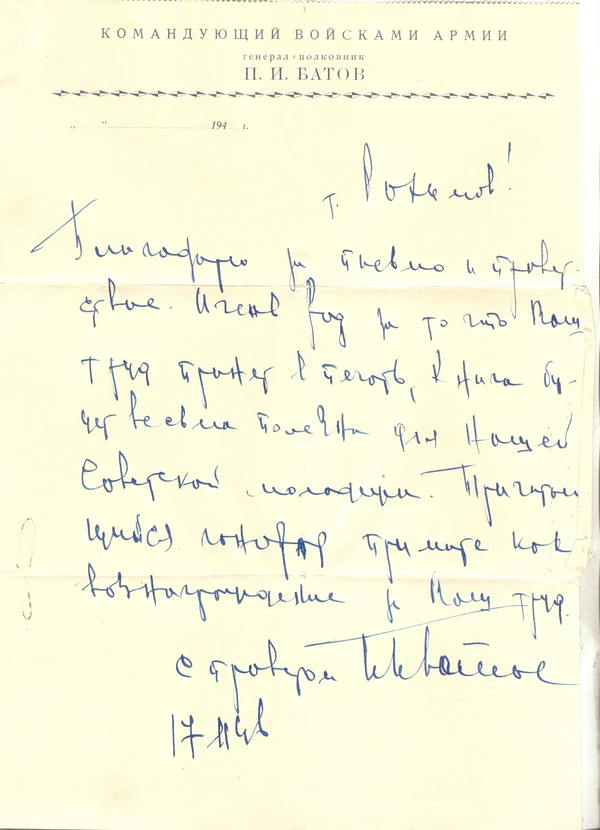 КОМАНДУЮЩИЙ ВОЙСКАМИ АРМИИ
генерал-полковник
П. И. БАТОВ
„ “ 194 г.
т.
Благодарю за письмо и привет-
ствие. Очень рад за то что Ваш
труд принят в печать, Книга бу-
дет весьма полезна для Нашей
Советской молодежи. Причитаю
щийся гонорар примите как
вознаграждение за Ваш труд.
с приветом
17